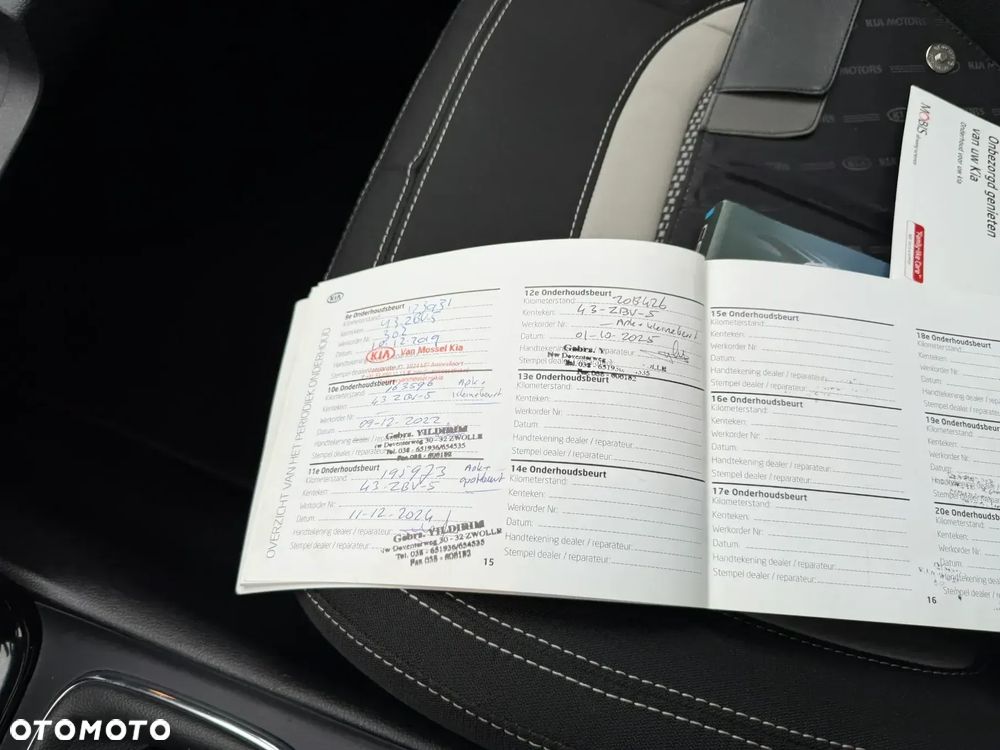 KIA MOTORS
MOTORS
KIA
MOBIS
Onbezorgd genieten
van uw Kia
Onderhoud voor uw kia
"Family-like Care"
OVERZICHT VAN HET PERIODIEK ONDERHOUD
KIA
9e Onderhoudsbeurt
Kilometerstand:
Kenteken: 43-ZBV-5
Werkorder Nr:
Datum: 12.2019
Handtekening
KIA Van Mossel Kia
Stempel dealer
10e Onderhoudsbeurt
Kilometerstand: 163596 Apk +
Kenteken: 43-ZBV-5 kleinebeurt
Werkorder Nr: —
Datum: 09-12-2022
Handtekening dealer / reparateur:
Stempel dealer / reparateur:
Gebrs. YILDIRIM
nw Deventerweg 30 - 32 ZWOLLE
Tel. 038 - 651936/654535
Fax 038 - 606182
11e Onderhoudsbeurt
Kilometerstand: 195973 Apk+
Kenteken: 43-ZBV-5 grotebeurt
Werkorder Nr:
Datum: 11-12-2024
Handtekening dealer / reparateur:
Stempel dealer / reparateur:
Gebrs. YILDIRIM
nw Deventerweg 30 - 32 ZWOLLE
Tel. 038 - 651936/654535
Fax 038 - 606182
15
12e Onderhoudsbeurt
Kilometerstand: 208426
Kenteken: 43-ZBV-5
Werkorder Nr: — Apk + kleinebeurt
Datum: 01-10-2025
Handtekening dealer / reparateur:
Stempel dealer
Gebrs. Y
Nw Deventerweg
Tel. 038 - 6519
Fax 038 - 606182
13e Onderhoudsbeurt
Kilometerstand:
Kenteken:
Werkorder Nr:
Datum:
Handtekening dealer / reparateur:
Stempel dealer / reparateur:
14e Onderhoudsbeurt
Kilometerstand:
Kenteken:
Werkorder Nr:
Datum:
Handtekening dealer / reparateur:
Stempel dealer / reparateur:
15e Onderhoudsbeurt
Kilometerstand:
Kenteken:
Werkorder Nr:
Datum:
Handtekening dealer / reparateur:
Stempel dealer / reparateur:
16e Onderhoudsbeurt
Kilometerstand:
Kenteken:
Werkorder Nr:
Datum:
Handtekening dealer / reparateur:
Stempel dealer / reparateur:
17e Onderhoudsbeurt
Kilometerstand:
Kenteken:
Werkorder Nr:
Datum:
Handtekening dealer / reparateur:
Stempel dealer / reparateur:
16
18e Onderhoudsbeurt
Kilometerstand:
Kenteken:
Werkorder Nr:
Datum:
Handtekening dealer / rep
Stempel dealer / reparateur
19e Onderhoudsb
Kilometerstand:
Kenteken:
Werkorder Nr:
Datum:
Stempel dealer
20e Onderhoudsb
Kilometerstand:
Kenteken:
Werkorder Nr:
Datum:
Handtekening dealer
Stempel dealer / re
OTOMOTO